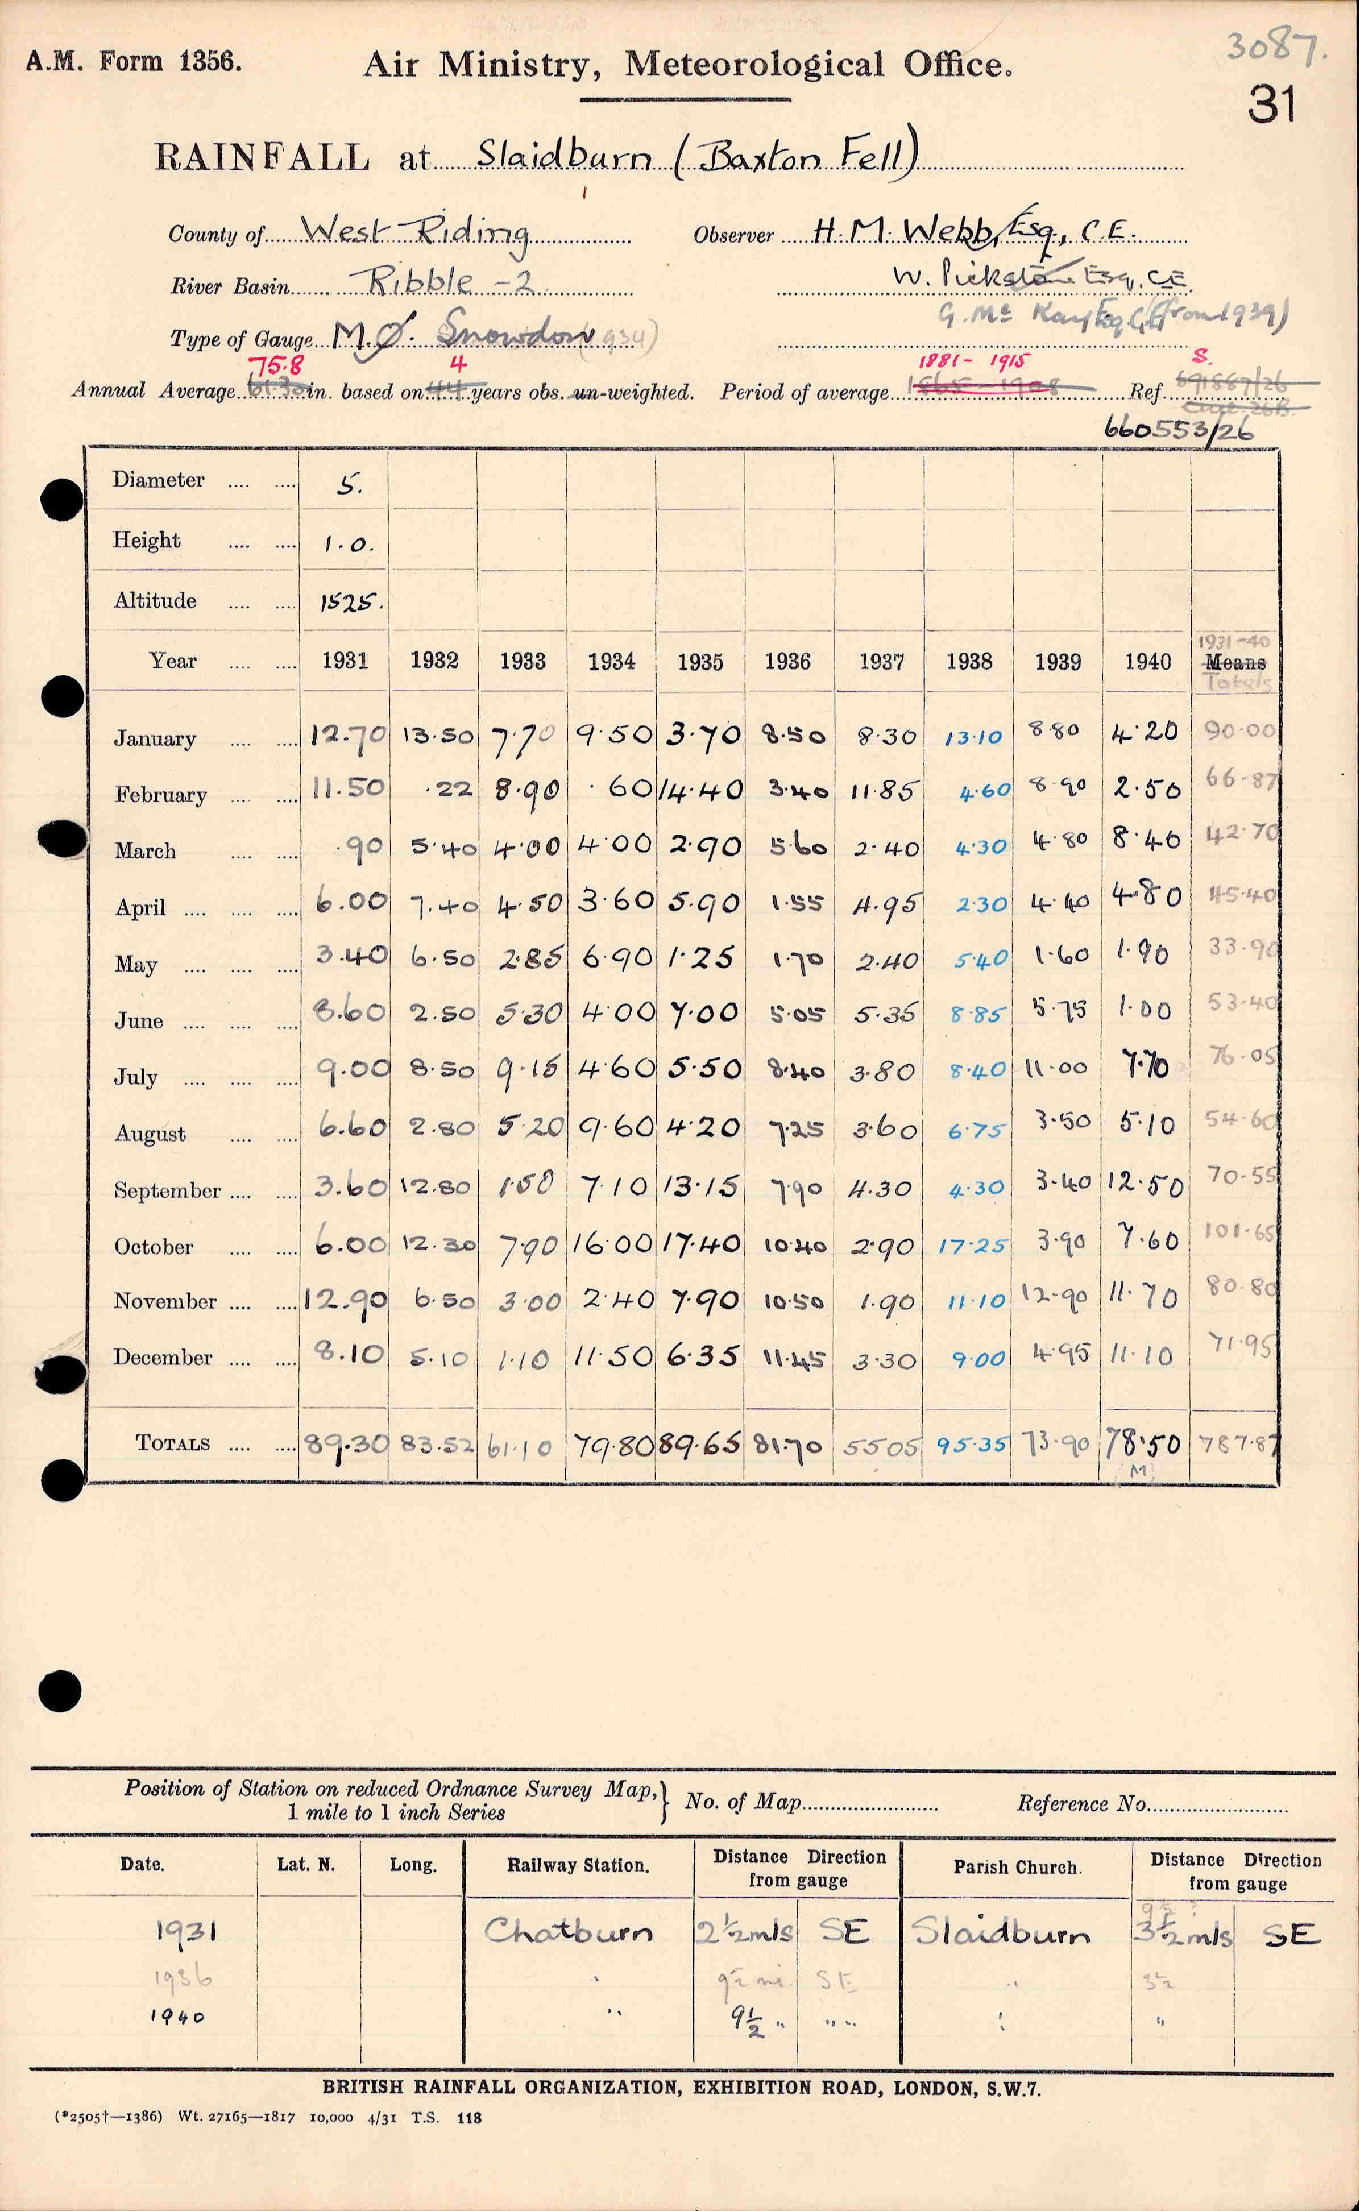 3087.
A.M. Form 1356. Air Ministry, Meteorological Office.
31
RAINFALL at Slaidburn (Baxton Fell)
County of West Riding Observer H. M. Webb, Esq., C.E.
River Basin Ribble - 2 W. Pickstone Esq. C.E.
Type of Gauge M.O. Snowdon (1934) G. Mc Kay Esq C.E. (from 1939)
75.8 4 1881 - 1915 S.
Annual Average 61.30 in. based on 44 years obs. un-weighted. Period of average 1865 - 1908 Ref. 691887/26
660553/26
Diameter .... .... 5.
Height .... .... 1.0.
Altitude .... .... 1525.
1931-40
Year .... .... 1931 1932 1933 1934 1935 1936 1937 1938 1939 1940 Means
Totals
January .... .... 12.70 13.50 7.70 9.50 3.70 8.50 8.30 13.10 8.80 4.20 90.00
February .... .... 11.50 .22 8.90 .60 14.40 3.40 11.85 4.60 8.90 2.50 66.87
March .... .... .90 5.40 4.00 4.00 2.90 5.60 2.40 4.30 4.80 8.40 42.70
April .... .... .... 6.00 7.40 4.50 3.60 5.90 1.55 4.95 2.30 4.40 4.80 45.40
May .... .... .... 3.40 6.50 2.85 6.90 1.25 1.70 2.40 5.40 1.60 1.90 33.90
June .... .... .... 8.60 2.50 5.30 4.00 7.00 5.05 5.35 8.85 5.75 1.00 53.40
July .... .... .... 9.00 8.50 9.15 4.60 5.50 8.40 3.80 8.40 11.00 7.70 76.05
August .... .... 6.60 2.80 5.20 9.60 4.20 7.25 3.60 6.75 3.50 5.10 54.60
September .... .... 3.60 12.80 1.50 7.10 13.15 7.90 4.30 4.30 3.40 12.50 70.55
October .... .... 6.00 12.30 7.90 16.00 17.40 10.40 2.90 17.25 3.90 7.60 101.65
November .... .... 12.90 6.50 3.00 2.40 7.90 10.50 1.90 11.10 12.90 11.70 80.80
December .... .... 8.10 5.10 1.10 11.50 6.35 11.45 3.30 9.00 4.95 11.10 71.95
TOTALS .... .... 89.30 83.52 61.10 79.80 89.65 81.70 55.05 95.35 73.90 78.50 787.87
(M)
Position of Station on reduced Ordnance Survey Map,} No. of Map Reference No.
1 mile to 1 inch Series
Date. Lat. N. Long. Railway Station. Distance Direction from gauge Parish Church. Distance Direction from gauge
9½ ?
1931 Chatburn 2½ mls SE Slaidburn 3½ mls SE
1936 " 9½ mi SE " 3½
1940 " 9½ " " " : "
BRITISH RAINFALL ORGANIZATION, EXHIBITION ROAD, LONDON, S.W.7.
(*2505†—1386) Wt. 27165—1817 10,000 4/31 T.S. 118